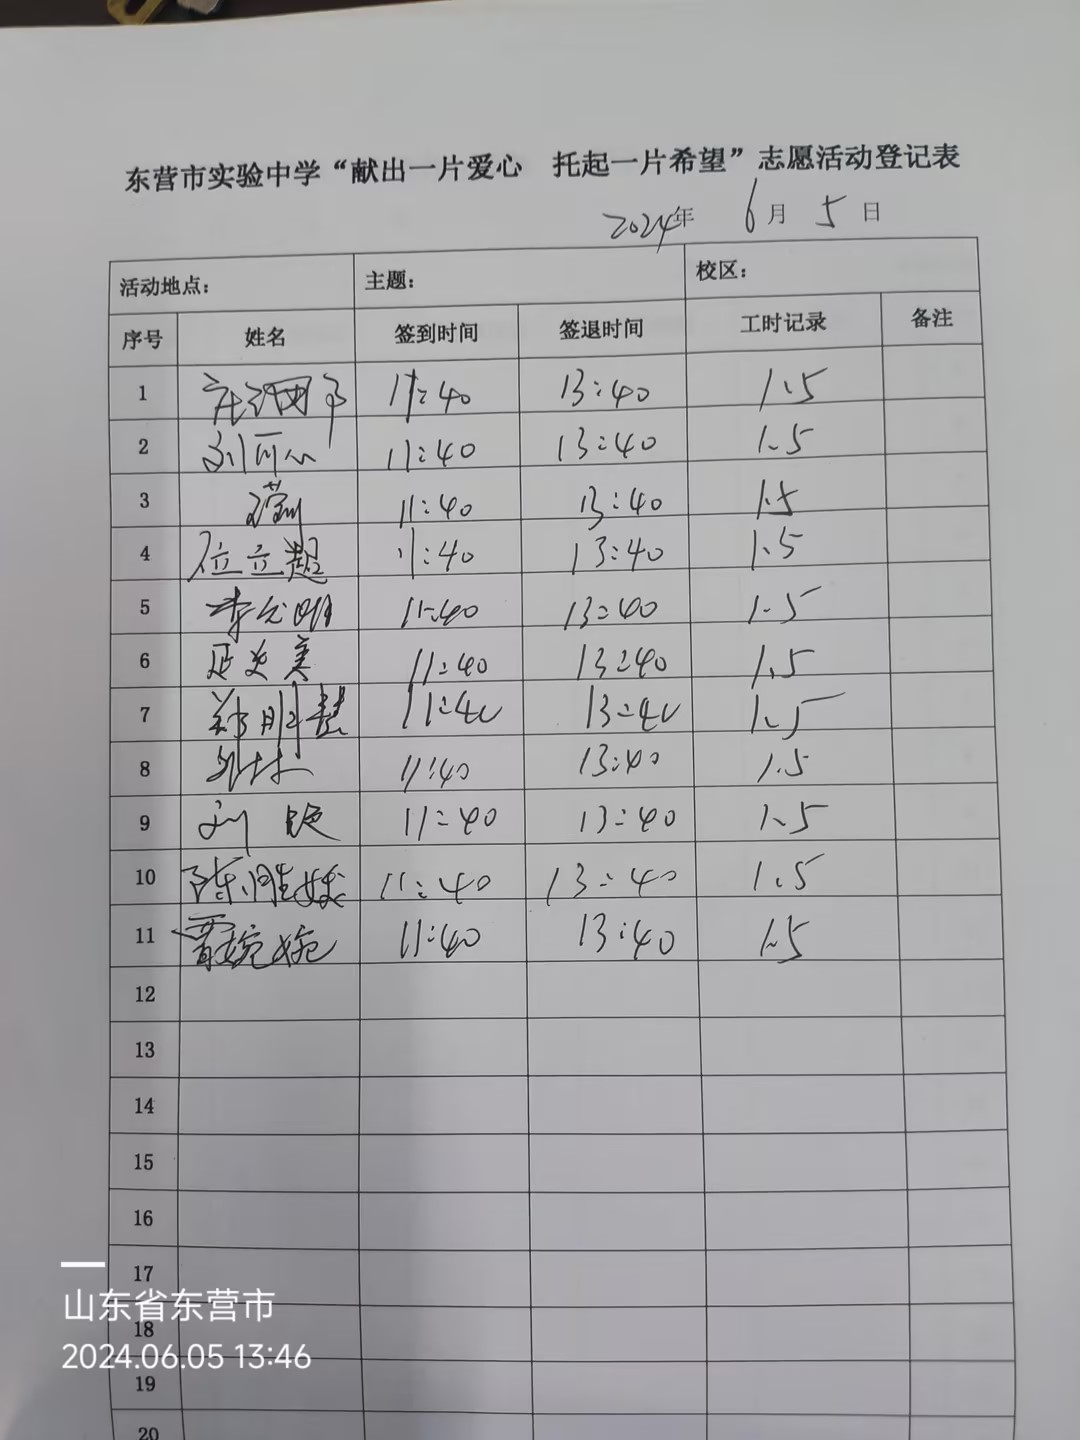 东营市实验中学“献出一片爱心 托起一片希望”志愿活动登记表
2024年 6月 5日
活动地点： 主题： 校区：
序号 姓名 签到时间 签退时间 工时记录 备注
1 11:40 13:40 1.5
2 刘可心 11:40 13:40 1.5
3 11:40 13:40 1.5
4 位立超 11:40 13:40 1.5
5 李允明 11:40 13:40 1.5
6 11:40 13:40 1.5
7 郑胜慧 11:40 13:40 1.5
8 11:40 13:40 1.5
9 刘 11:40 13:40 1.5
10 陈 11:40 13:40 1.5
11 贾婉婉 11:40 13:40 1.5
12
13
14
15
16
17
18
19
20
山东省东营市
2024.06.05 13:46